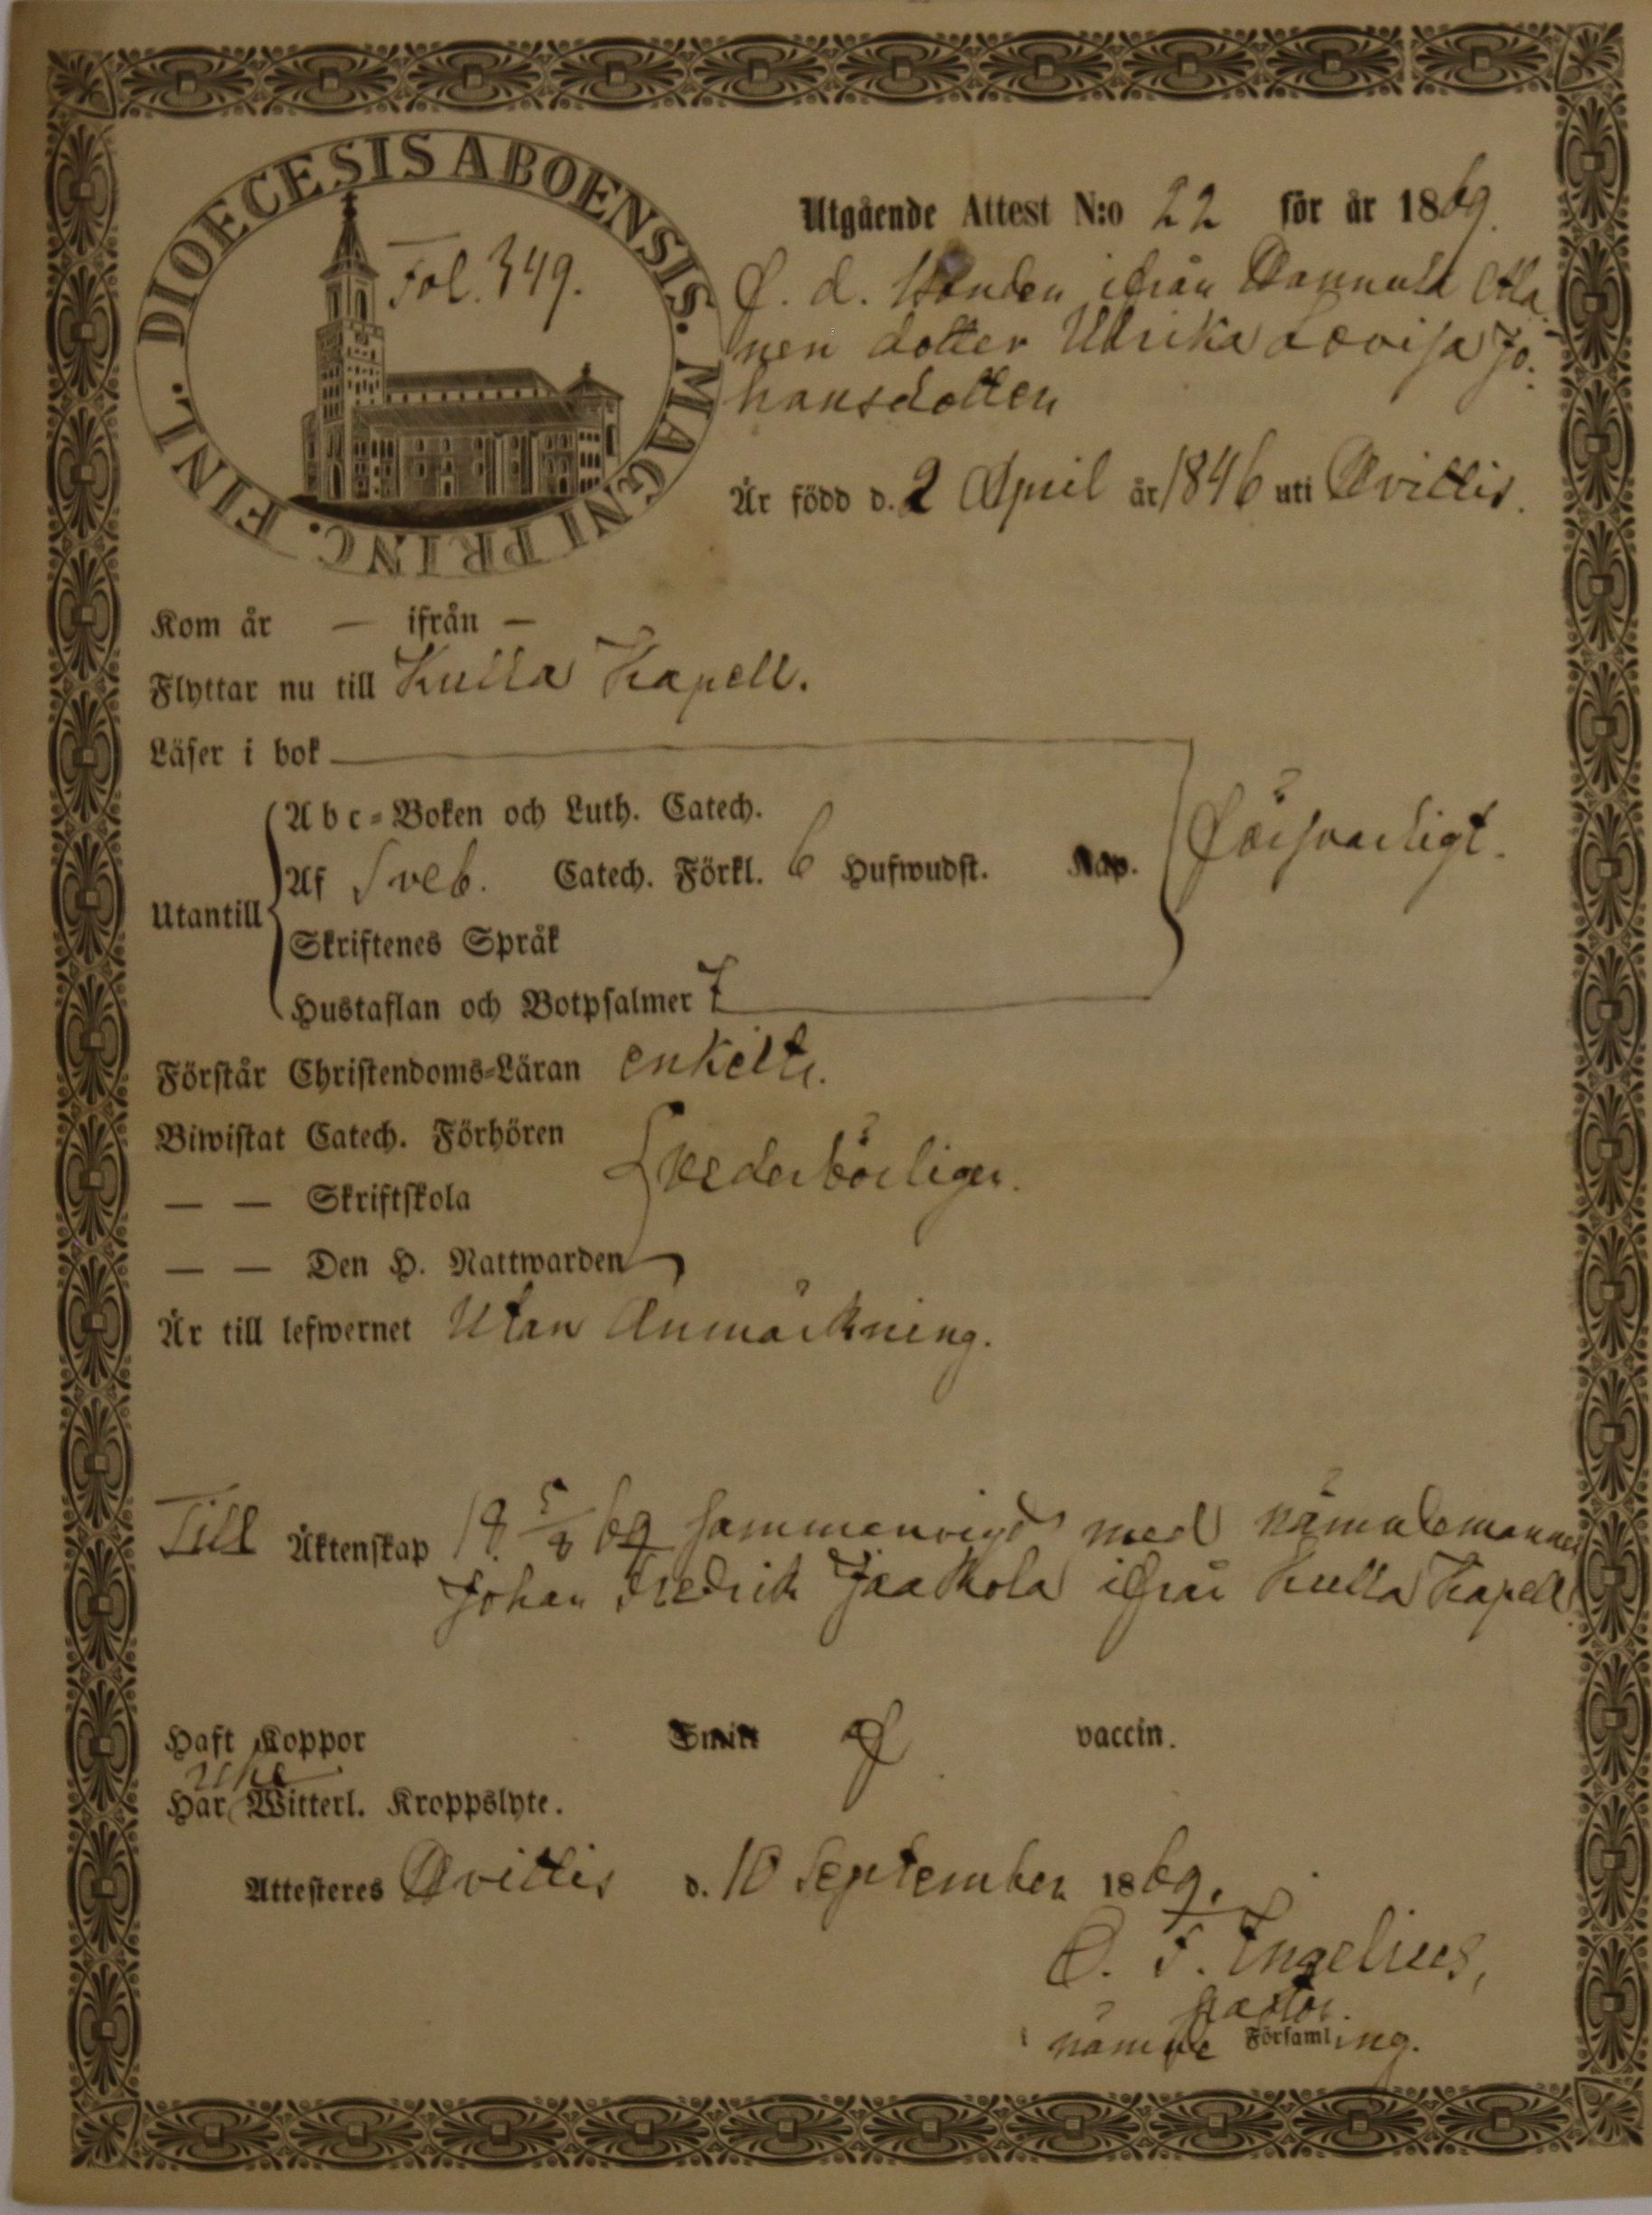 DIOECESIS ABOENSIS. MAGNI PRINC. FINL.
Fol. 349.
Utgående Attest N:o 22 för år 1869.
f. d. Bonden ifrån
nen dotter Ulrika Lovisa Jo-
hansdotter
Är född d. 2 April år 1846 uti Hvittis.
Kom år — ifrån —
Flyttar nu till Kulla Kapell.
Läser i bok
Abc-Boken och Luth. Catech.
Af Sveb. Catech. Förkl. 6 Hufwudst. Kap.
Försvarligt.
Utantill
Skriftenes Språk
Hustaflan och Botpsalmer 7
Förstår Christendoms-Läran enkelt.
Biwistat Catech. Förhören
vederbörligen.
— — Skriftskola
— — Den H. Nattwarden
Är till lefwernet Utan Anmärkning.
Till Äktenskap 18 5/8 69 sammanvigd med nämndemannen
Johan Fredrik Jaakkola ifrån Kulla Kapell.
Haft Koppor vaccin.
icke
Har Witterl. Kroppslyte.
Attesteres Hvittis d. 10 September 1869.
O. F. Ingelius,
pastor.
nämde Församling.